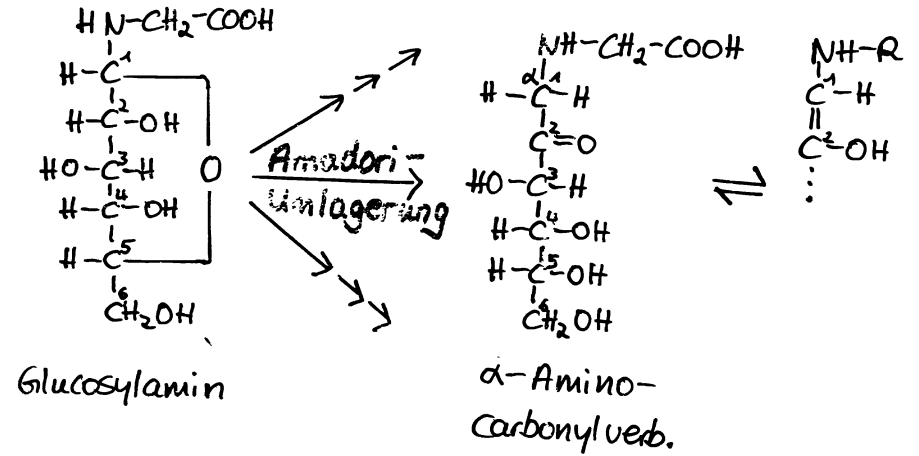 HN-CH₂-COOH
H-C¹
H-C²-OH
HO-C³-H
O
H-C⁴-OH
H-C⁵
C⁶H₂OH
Glucosylamin
Amadori-
Umlagerung
NH-CH₂-COOH
α
H-C¹-H
C²=O
HO-C³-H
H-C⁴-OH
H-C⁵-OH
C⁶H₂OH
α-Amino-
carbonylverb.
⇌
NH-R
C¹-H
C²-OH
⋮